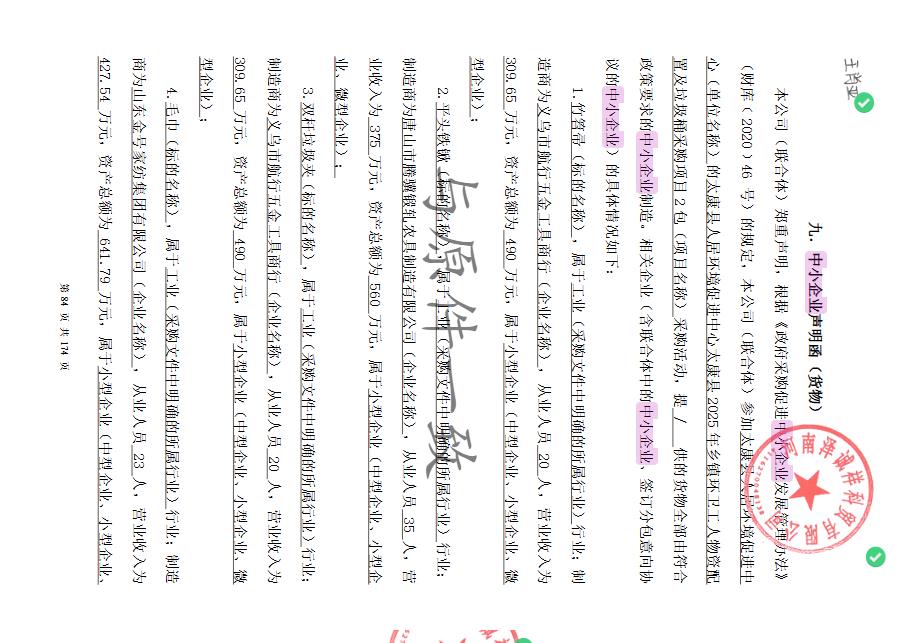 王肖亚
九. 中小企业声明函（货物）
本公司（联合体）郑重声明，根据《政府采购促进中小企业发展管理办法》
（财库﹝2020﹞46 号）的规定，本公司（联合体）参加太康县人居环境促进中
心（单位名称）的太康县人居环境促进中心太康县 2025 年乡镇环卫工人物资配
置及垃圾桶采购项目 2 包（项目名称）采购活动，提 / 供的货物全部由符合
政策要求的中小企业制造。相关企业（含联合体中的中小企业、签订分包意向协
议的中小企业）的具体情况如下：
1. 竹笤帚（标的名称），属于工业（采购文件中明确的所属行业）行业；制
造商为义乌市航行五金工具商行（企业名称），从业人员 20 人，营业收入为
309.65 万元，资产总额为 490 万元，属于小型企业（中型企业、小型企业、微
型企业）；
2. 平头铁锹（标的名称），属于工业（采购文件中明确的所属行业）行业；
制造商为唐山市腾骥锻轧农具制造有限公司（企业名称），从业人员 35 人，营
业收入为 375 万元，资产总额为 560 万元，属于小型企业（中型企业、小型企
业、微型企业）；
3. 双杆垃圾夹（标的名称），属于工业（采购文件中明确的所属行业）行业；
制造商为义乌市航行五金工具商行（企业名称），从业人员 20 人，营业收入为
309.65 万元，资产总额为 490 万元，属于小型企业（中型企业、小型企业、微
型企业）；
4. 毛巾（标的名称），属于工业（采购文件中明确的所属行业）行业；制造
商为山东金号家纺集团有限公司（企业名称），从业人员 23 人，营业收入为
427.54 万元，资产总额为 641.79 万元，属于小型企业（中型企业、小型企业、
第 84 页 共 174 页
与原件一致
河南泽诚祥科贸有限公司